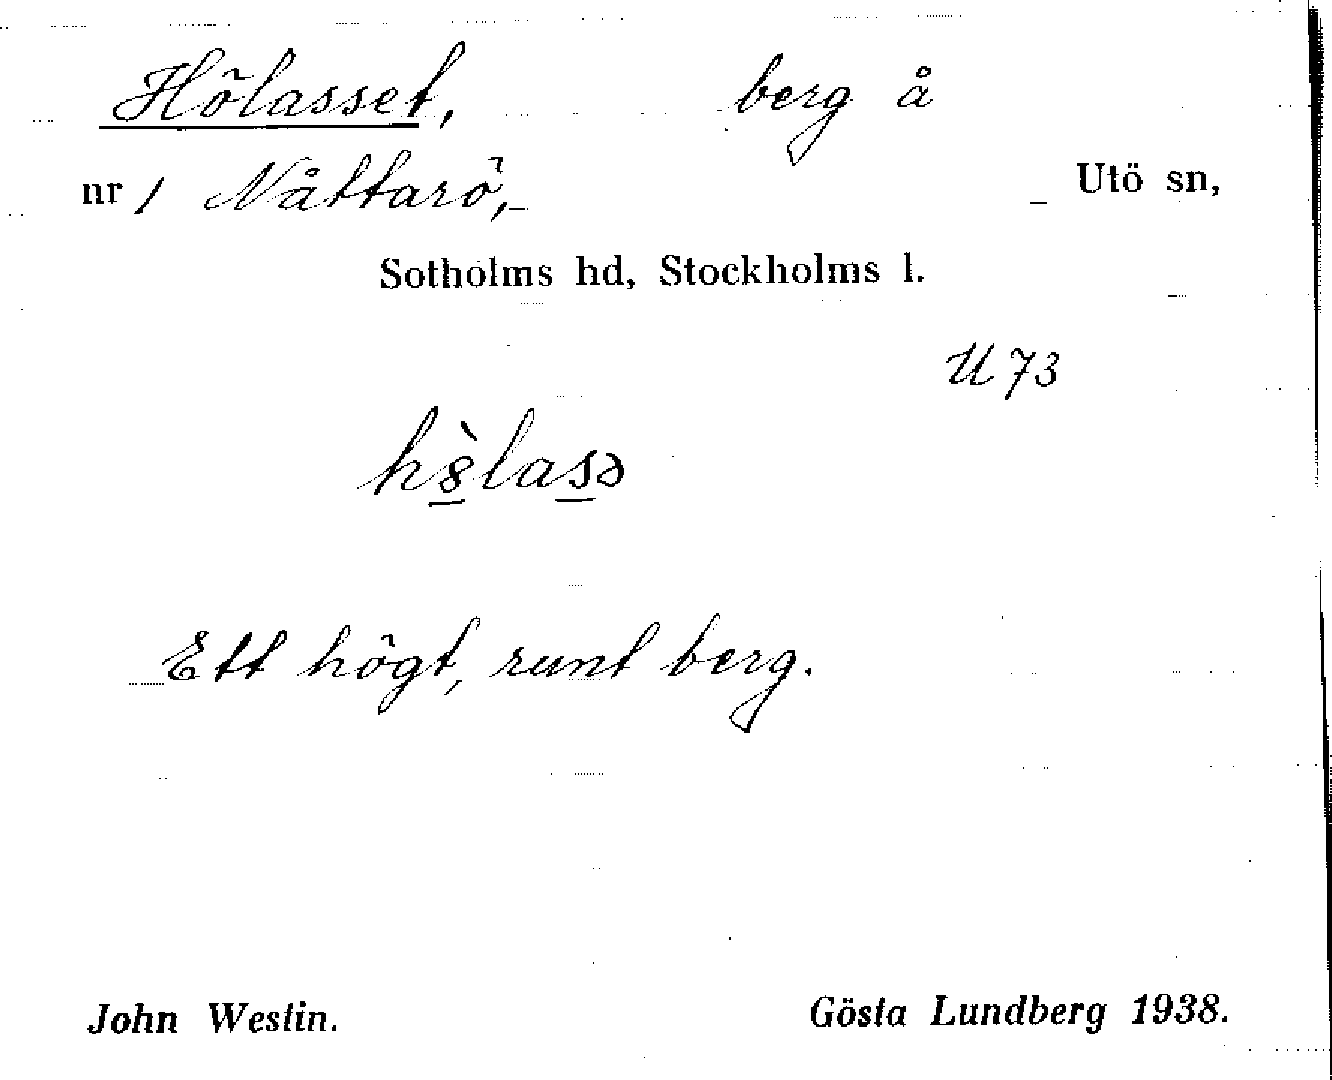 Hölasset, berg å
nr 1 Nåttarö, Utö sn,
Sotholms hd, Stockholms l.
U 73
h8̠̀las̠ə
Ett högt, runt berg.
John Westin. Gösta Lundberg 1938.